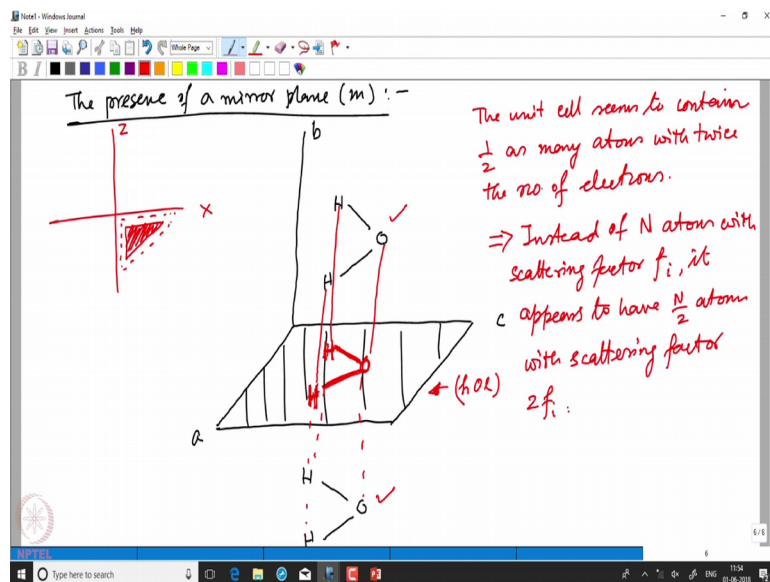 Note1 - Windows Journal
File Edit View Insert Actions Tools Help
Whole Page
B I
The presene of a mirror plane (m) :-
z
x
b
H
O
H
H
O
H
c
a
(h0l)
H
O
H
The unit cell seems to contain
1/2 as many atoms with twice
the no. of electrons.
⇒ Instead of N atoms with
scattering factor fi, it
appears to have N/2 atoms
with scattering factor
2fi.
NPTEL
6/6
6
Type here to search
ENG
11:54
01-06-2018